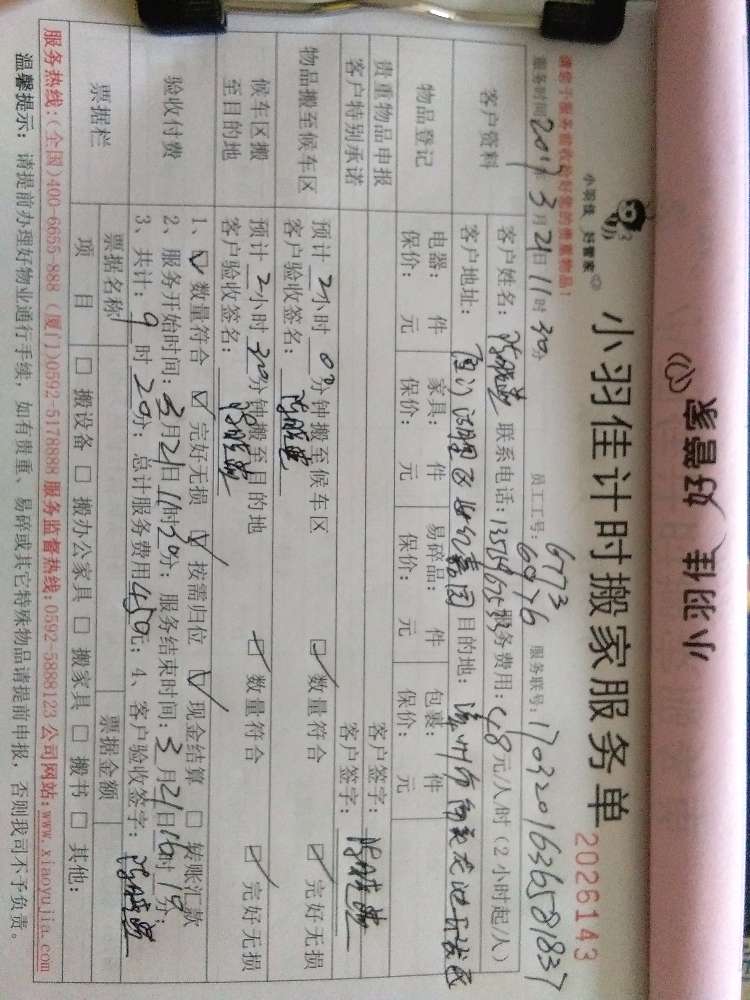 小羽佳 好管家
小羽佳 好管家
小羽佳计时搬家服务单
2026143
请您于服务前收拾好您的贵重物品!
服务时间 2017年3月21日11时30分 员工工号: 6773 6876 服务联号: 170320163658837
客户资料
客户姓名: 联系电话: 服务费用: 48元/人/时(2小时起/人)
客户地址: 厦门 目的地:
物品登记
电器: 件 家具: 件 易碎品: 件 包裹: 件
保价: 元 保价: 元 保价: 元 保价: 元
贵重物品申报 客户签字:
客户特别承诺 客户签字:
物品搬至候车区
预计2小时00分钟搬至候车区 ☑数量符合 ☑完好无损
客户验收签名:
候车区搬至目的地
预计2小时30分钟搬至目的地 ☑数量符合 ☑完好无损
客户验收签名:
验收付费
1、☑数量符合 ☑完好无损 ☑按需归位 ☑现金结算 □转账汇款
2、服务开始时间: 3月21日11时20分; 服务结束时间: 3月21日16时10分;
3、共计: 9时20分; 总计服务费用450元; 4、客户验收签字:
票据栏
票据名称 票据金额
项目 □搬设备 □搬办公家具 □搬家具 □搬书 □其他:
服务热线:(全国)400-6655-888 (厦门)0592-5178888 服务监督热线:0592-5888123 公司网站:www.xiaoyujia.com
温馨提示: 请提前办理好物业通行手续, 如有贵重、易碎或其它特殊物品请提前申报, 否则我司不予负责。